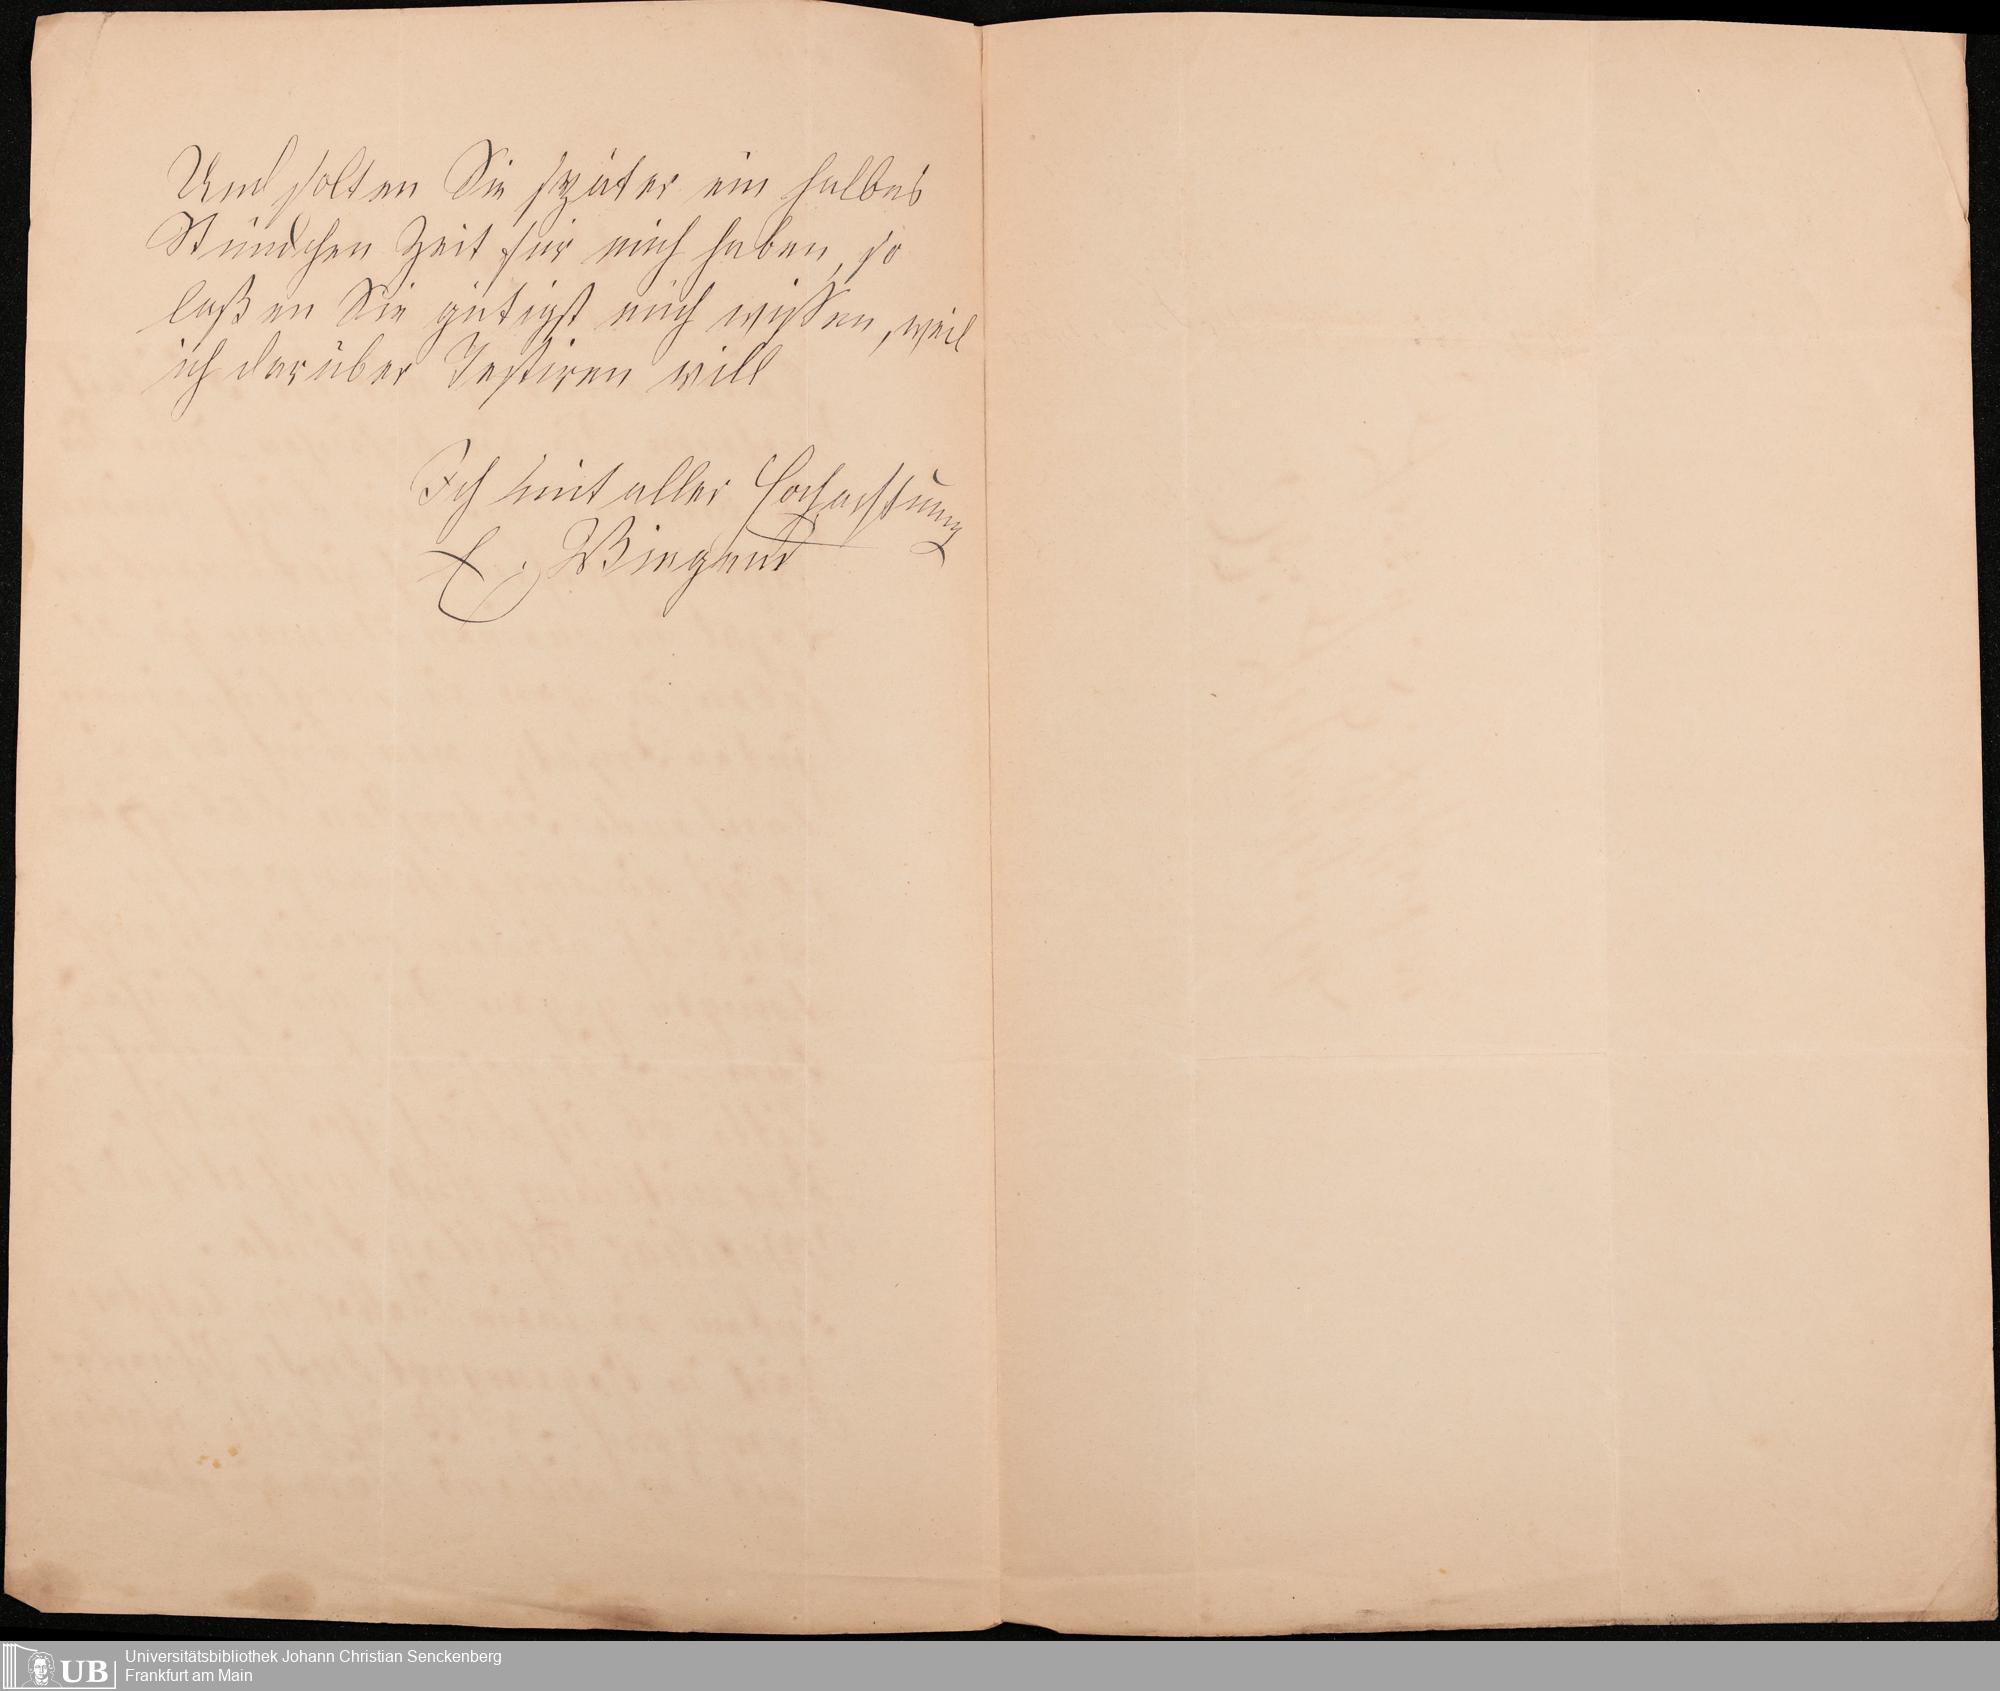 Und solten Sie später ein halbes
Stündchen Zeit für mich haben, so
laßen Sie gütigst mich wißen, weil
ich darüber Testiren will
Ich mit aller Hochachtung
E. Wiegand
Universitätsbibliothek Johann Christian Senckenberg
Frankfurt am Main
UB